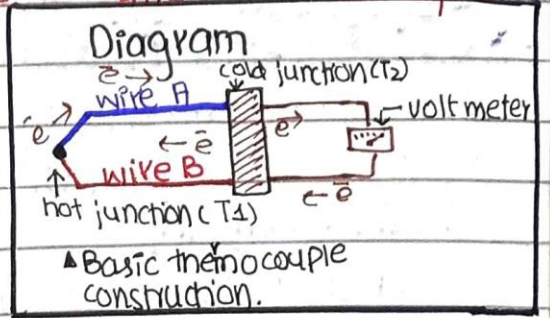 Diagram
e →
cold junction (T2)
wire A
voltmeter
e
← e
e
wire B
← e
hot junction (T1)
Basic themocouple
construction.